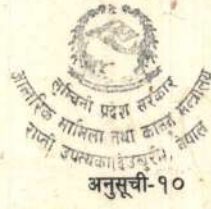 लुम्बिनी प्रदेश सरकार
आन्तरिक मामिला तथा कानून मन्त्रालय
राप्ती उपत्यका(देउखुरी), नेपाल
अनुसूची-१०